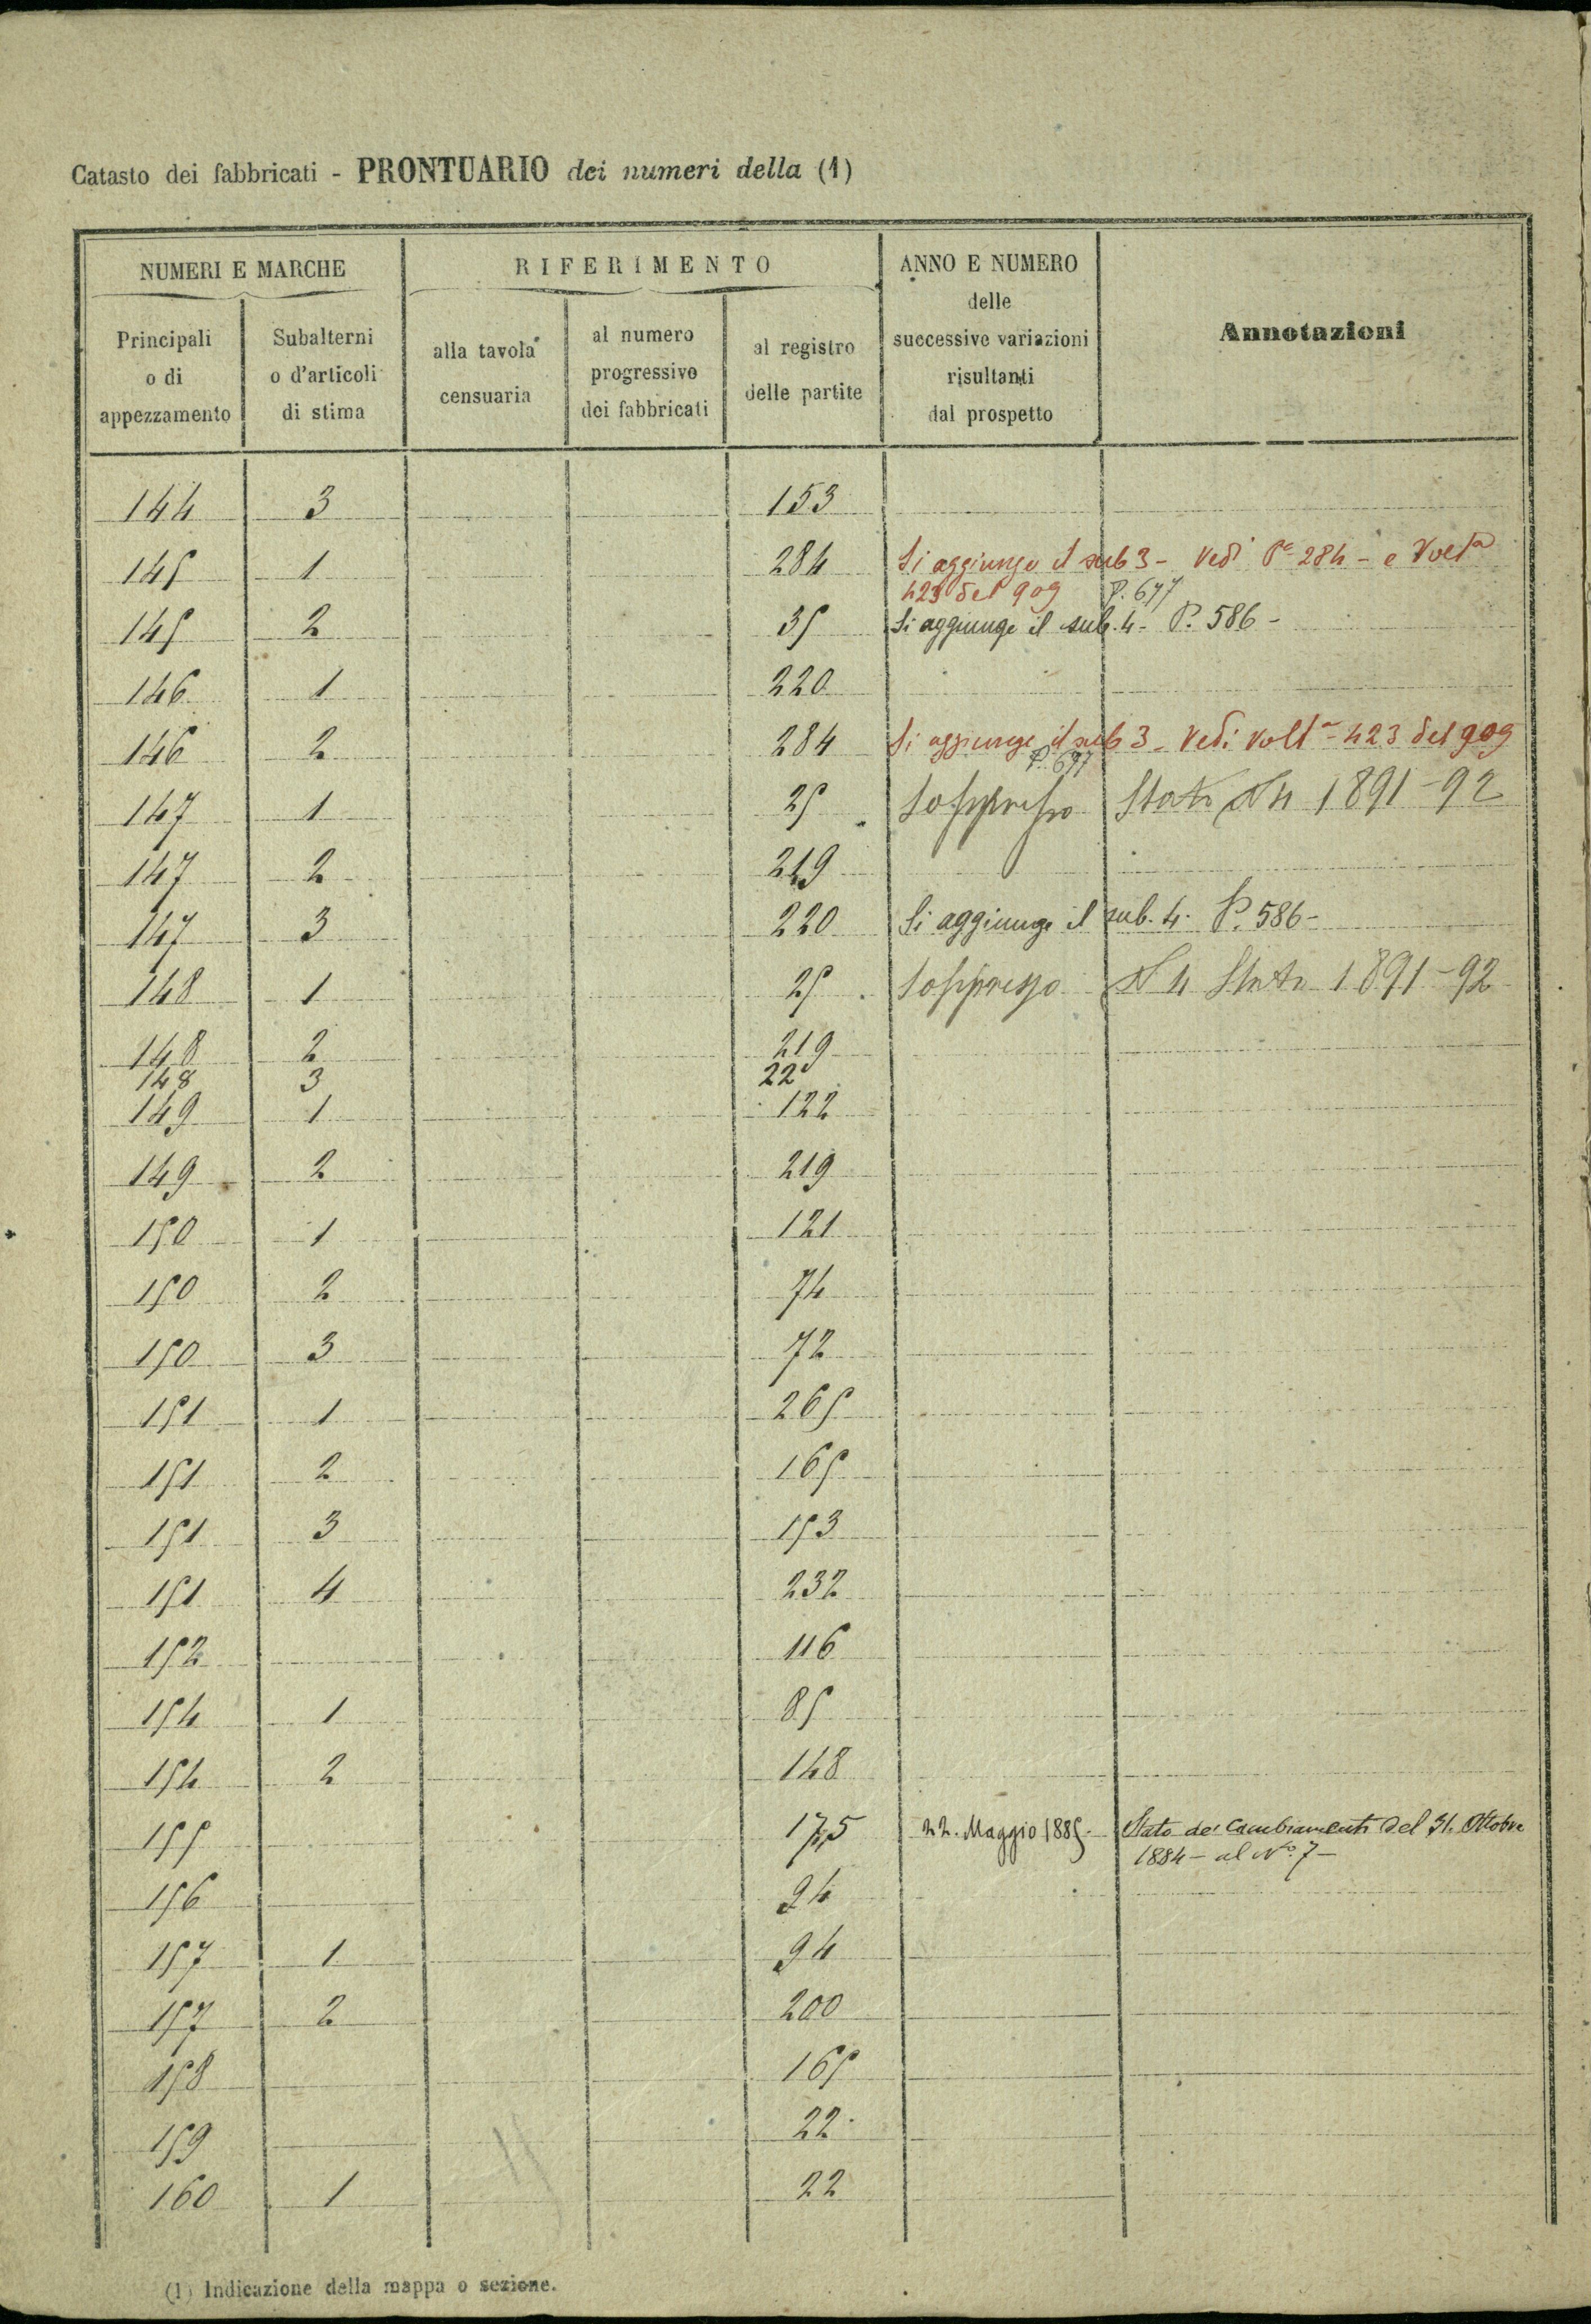 Catasto dei fabbricati - PRONTUARIO dei numeri della (1)
NUMERI E MARCHE
RIFERIMENTO
ANNO E NUMERO
delle
successive variazioni
risultanti
dal prospetto
Annotazioni
Principali
o di
appezzamento
Subalterni
o d'articoli
di stima
alla tavola
censuaria
al numero
progressivo
dei fabbricati
al registro
delle partite
144 3 153
145 1 284 Si aggiunge il sub 3 - Vedi P.e 284 - e Volt.a
423 del 909 P. 677
145 2 35 Si aggiunge il sub. 4 - P. 586 -
146 1 220
146 2 284 Si aggiunge il sub 3 - Vedi Volt.a 423 del 909
P. 677
147 1 25 Soppresso Stato N 4 1891-92
147 2 219
147 3 220 Si aggiunge il sub. 4. P. 586 -
148 1 25 Soppresso N 4 Stato 1891-92
148 2 219
148 3 220
149 1 122
149 2 219
150 1 121
150 2 74
150 3 72
151 1 265
151 2 165
151 3 153
151 4 232
152 116
154 1 85
154 2 148
155 175 22. Maggio 1885. Stato dei Cambiamenti del 31. Ottobre
1884 - al N.o 7 -
156 94
157 1 94
157 2 200
158 165
159 22
160 1 22
(1) Indicazione della mappa o sezione.